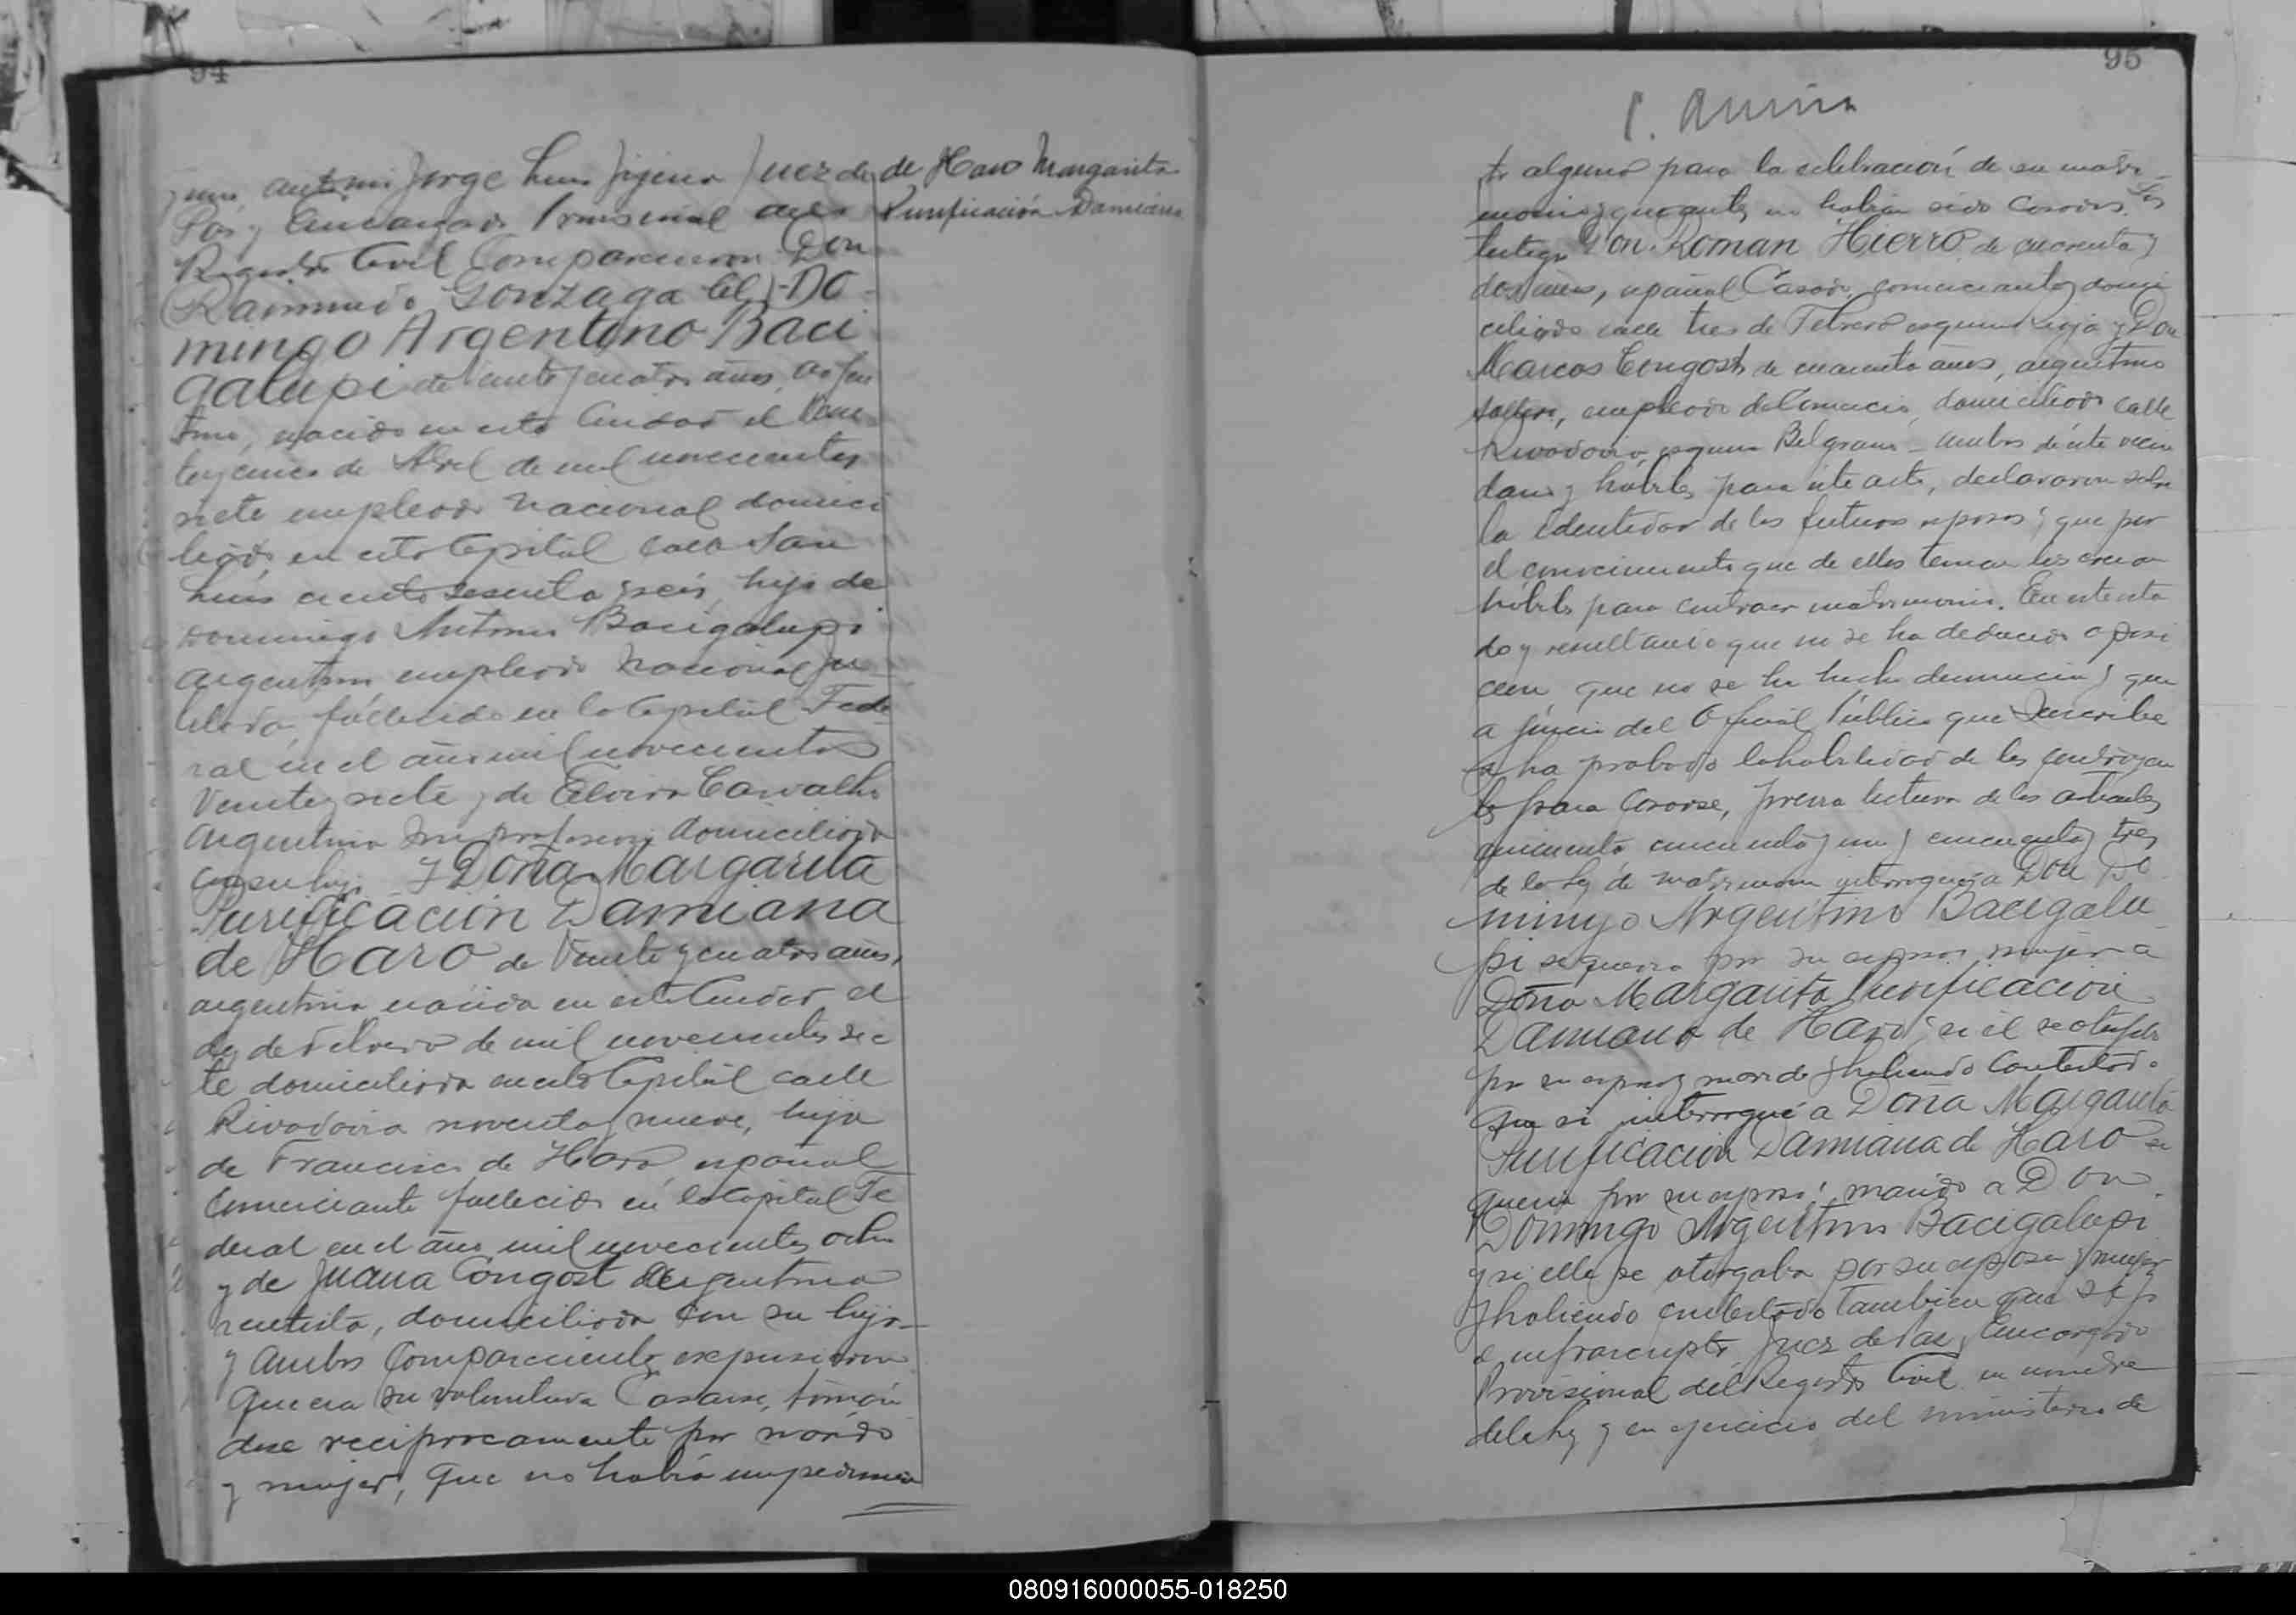 94
y uno, ante mi Jorge Luis Jijena Juez de
Paz y Encargado Provisional del
Registro Civil Comparecieron Don
Raimundo Gonzaga (el) DO
mingo Argentino Baci
galupi de veinte y cuatro años, argen
tino, nacido en esta Ciudad el Vein
te y cinco de Abril de mil novecientos
siete empleado Nacional domici
liado en esta Capital calle San
Luis ciento sesenta y seis, hijo de
Domingo Antonio Bacigalupi
argentino empleado Nacional Ju
bilado, fallecido en la Capital Fede
ral en el año mil novecientos
Veinte y siete y de Elvira Carvalho
argentina sin profesion domiciliada
con su hijo y Doña Margarita
Purificación Damiana
de Haro de Veinte y cuatro años,
argentina nacida en esta Ciudad el
de Febrero de mil novecientos sie
te domiciliada en esta Capital calle
Rivadavia noventa y nueve, hija
de Francisco de Haro español
Comerciante fallecido en la Capital Fe
deral en el año mil novecientos ocho
y de Juana Congost Argentina
rentista, domiciliada con su hija
y ambos Comparecientes expusieron
Que era su voluntad Casarse, tomán
dose reciprocamente por marido
y mujer, Que no había impedimen
de Haro Margarita
Purificación Damiana
95
to alguno para la celebración de su matri
monio y que antes no habian sido Casados. Los
testigos Don Roman Hierro de cuarenta y
dos años, español Casado, comerciante y domi
ciliado calle tres de Febrero esquina Rioja y Don
Marcos Congost de cuarenta años, argentino
soltero, empleado de Comercio, domiciliado calle
Rivadavia esquina Belgrano - ambos de este vecin
dario y habiles para este acto, declararon sobre
la identidad de los futuros esposos; que por
el conocimiento que de ellos tenian los creian
hábiles para contraer matrimonio. En este esta
do y resultando que no se ha deducido oposi
cion, que no se ha hecho denuncia y que
a juicio del Oficial Público que Suscribe
se ha probado la habilidad de los contrayen
tes para Casarse, previa lectura de los articulos
cincuenta, cincuenta y uno y cincuenta y tres
de la Ley de Matrimonio interrogué a Don DO
mingo Argentino Bacigalu
pi si queria por su esposa y mujer a
Doña Margarita Purificacion
Damiana de Haro y si el se otorgaba
por su esposo y marido y habiendo Contestado
que si interrogué a Doña Margarita
Purificacion Damiana de Haro si
queria por su esposo y marido a Don
Domingo Argentino Bacigalupi
y si ella se otorgaba por su esposa y mujer
y habiendo contestado tambien que si yo
el infrascripto Juez de Paz y Encargado
Provisional del Registro Civil en nombre
de la Ley y en ejercicio del ministerio de
080916000055-018250